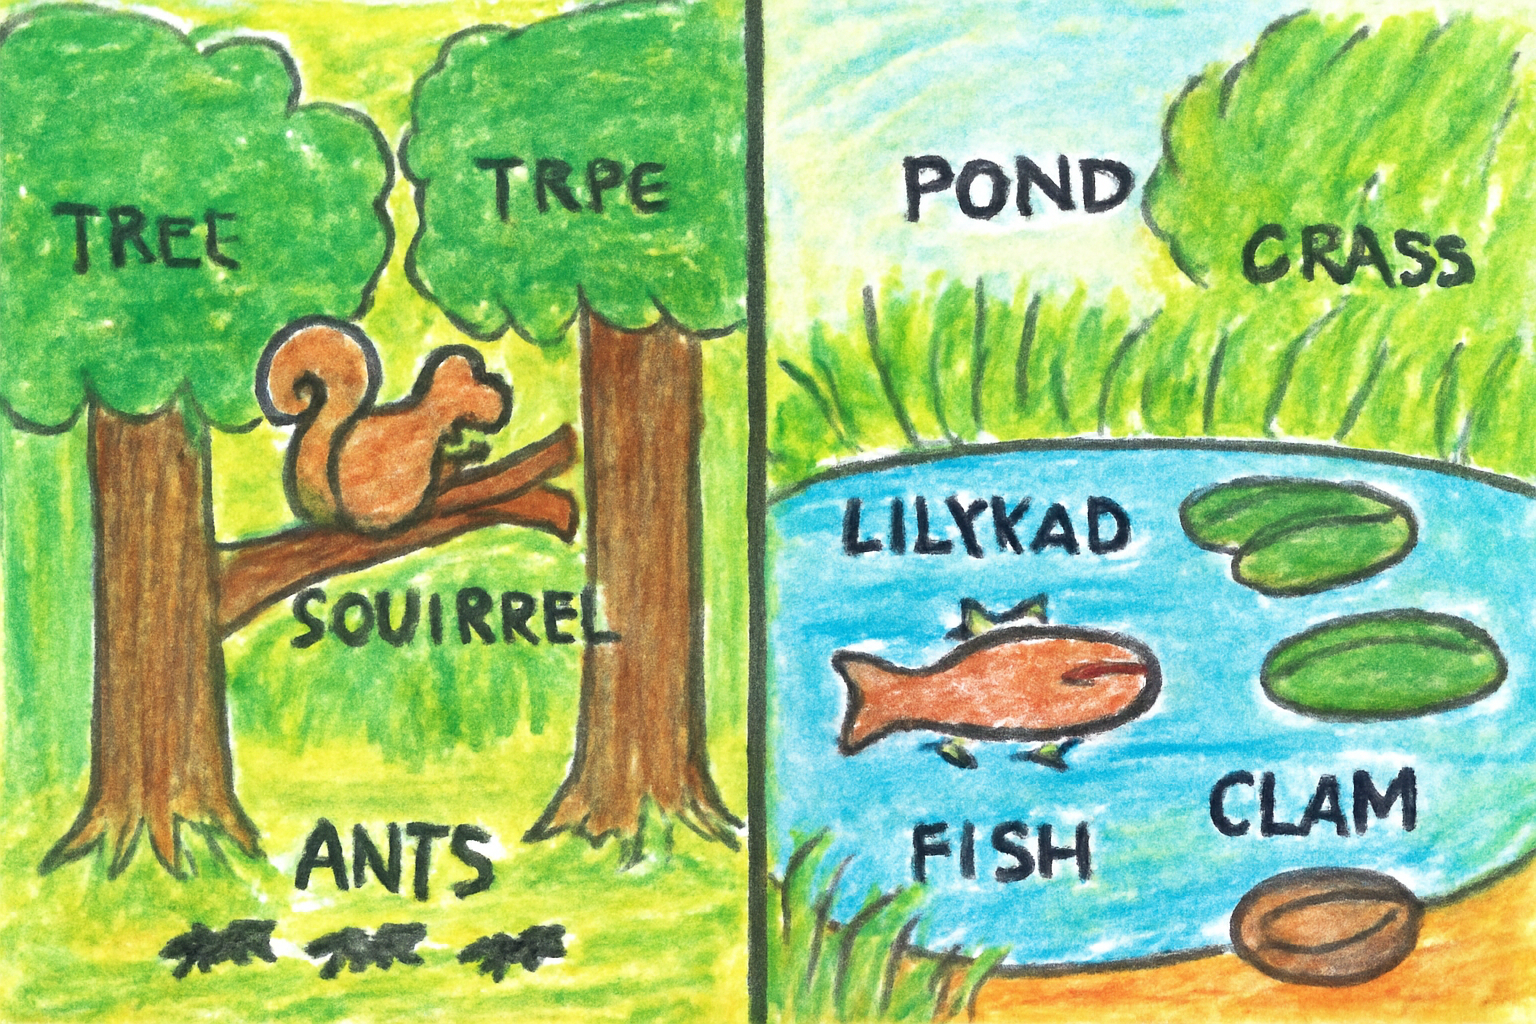 TREE
TRPE
SOUIRREL
ANTS
POND
CRASS
LILYKAD
FISH
CLAM